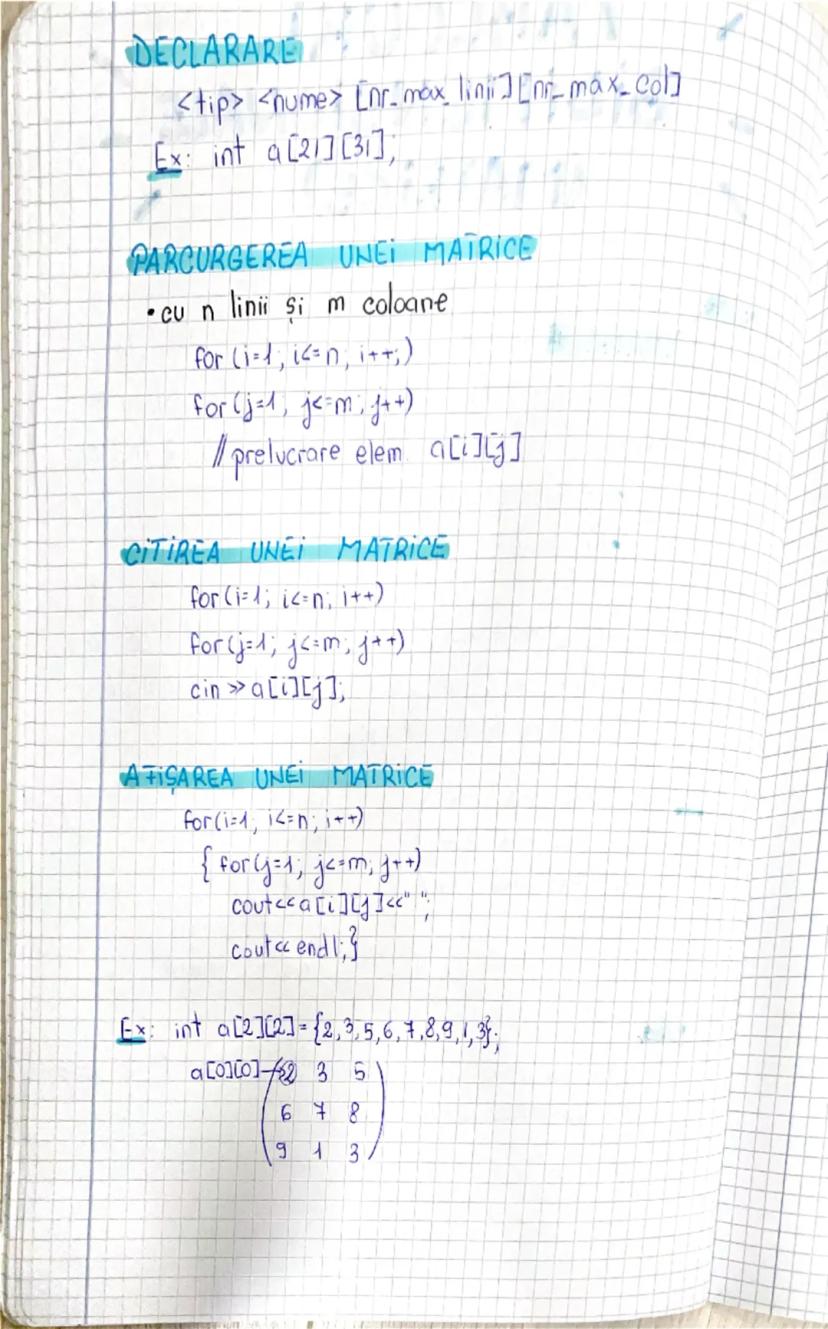 DECLARARE
<tip> <nume> [nr_max_linii][nr_max_col]
Ex: int a[21][31];
PARCURGEREA UNEI MATRICE
•cu n linii și m coloane
for (i=1; i<=n; i++;)
for (j=1; j<=m; j++)
//prelucrare elem. a[i][j]
CITIREA UNEI MATRICE
for(i=1; i<=n; i++)
for(j=1; j<=m; j++)
cin>>a[i][j];
AFIȘAREA UNEI MATRICE
for(i=1; i<=n; i++)
{ for(j=1; j<=m; j++)
cout<<a[i][j]<<" ";
cout<<endl;}
Ex: int a[2][2]={2,3,5,6,7,8,9,1,3};
a[0][0]→2 3 5
6 7 8
9 1 3